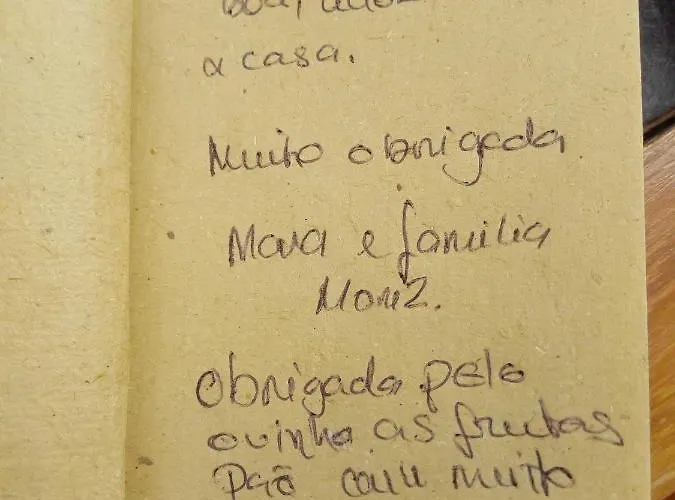 a casa.
Muito obrigada
Mara e familia
Moniz.
Obrigada pelo
ovinho as frutas
Pão com muito